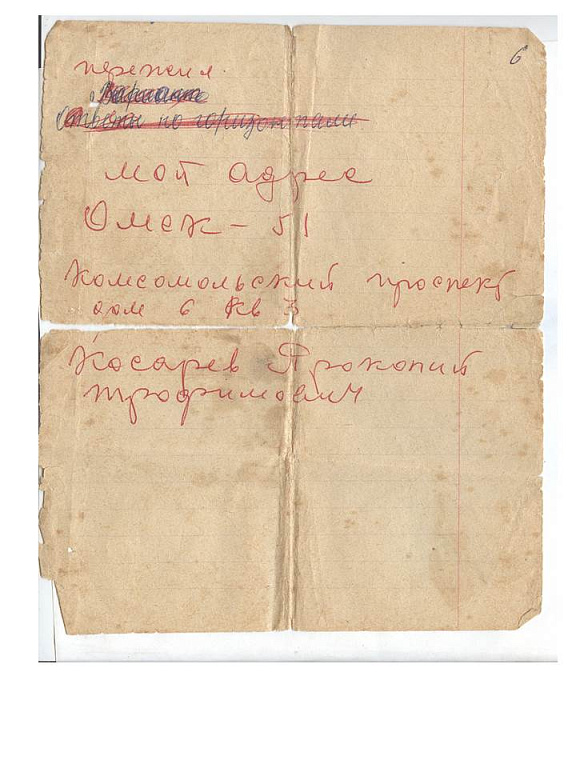 6
пережил.
Вариант
Ответы по горизонтали
мой адрес
Омск – 51
Комсомольский проспект
дом 6 кв 3
Косарев Прокопий
Трофимович